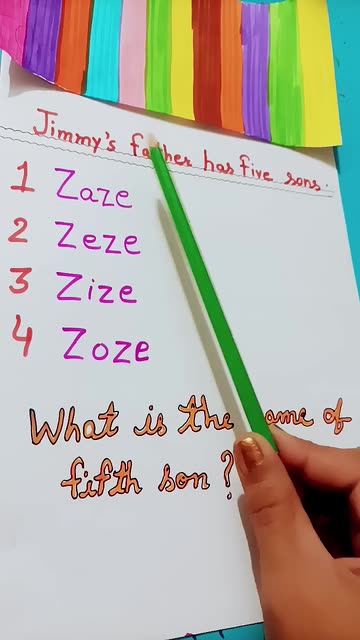 Jimmy's father has five sons.
1 Zaze
2 Zeze
3 Zize
4 Zoze
What is the name of
fifth son?